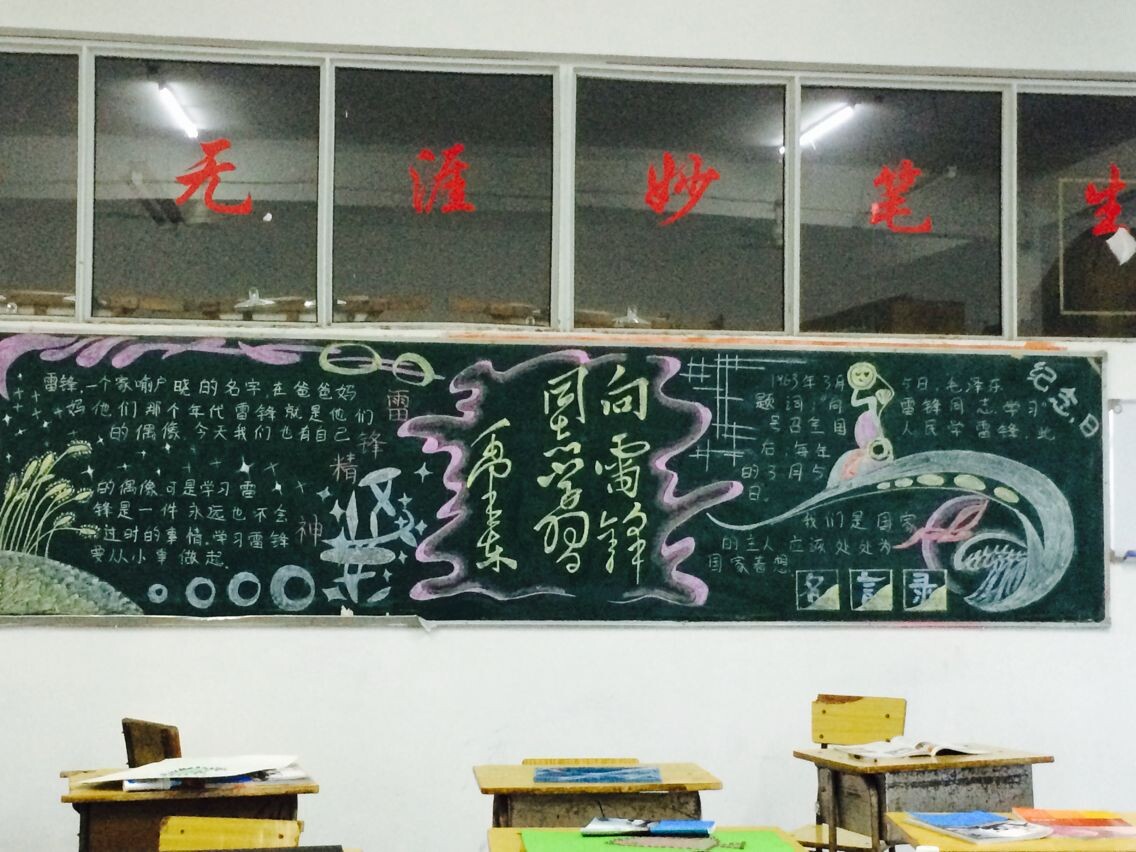 无涯妙笔生
雷锋,一个家喻户晓的名字,在爸爸妈
妈他们那个年代雷锋就是他们
的偶像,今天我们也有自己
的偶像,可是学习雷
锋是一件永远也不会
过时的事情,学习雷锋
要从小事做起.
雷锋精神
向雷锋
同志学习
毛泽东
纪念日
1963年3月5日,毛泽东
题词:"向雷锋同志学习"
号召全国人民学雷锋,此
后,每年
的3月5
日.
我们是国家
的主人,应该处处为
国家着想
名言录